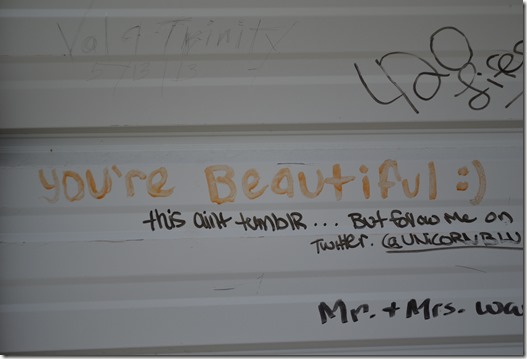 Val & Trinity
5/13/13
420
you're Beautiful :)
this aint tumblr... But follow me on
Twitter. @UNICORN
Mr. + Mrs.